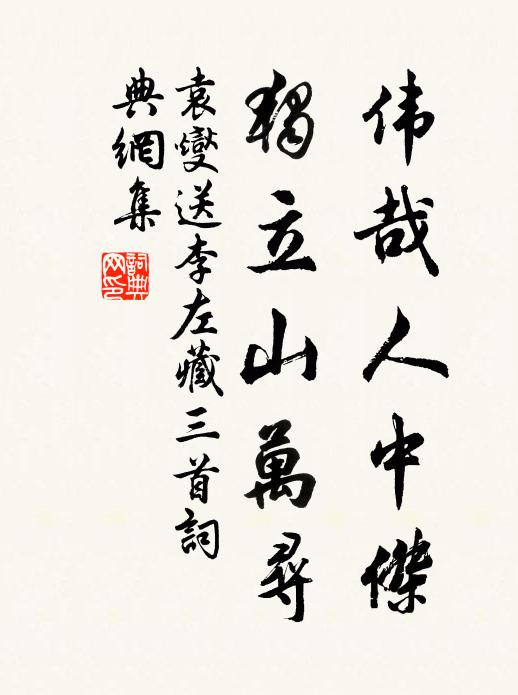 伟哉人中傑
獨立山萬尋
袁燮送李左藏三首詞
典網集
詞典網印